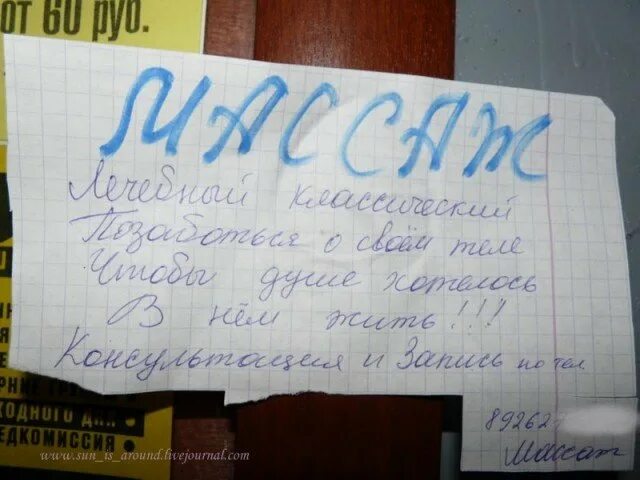 от 60 руб.
МАССАЖ
Лечебный классический
Позаботься о своём теле
Чтобы душе хотелось
В нём жить!!!
Консультация и Запись по тел
89262
Массаж
ХОДНОГО ДНЯ
ЕДКОМИССИЯ
www.sun_is_around.livejournal.com